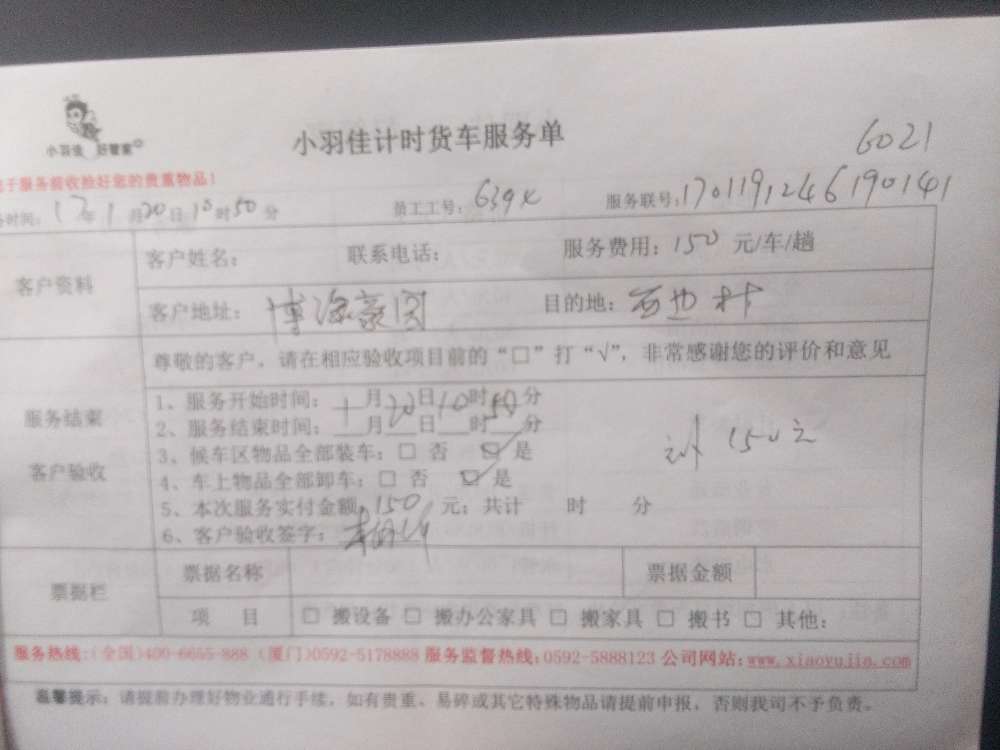 小羽佳 好管家
小羽佳计时货车服务单
6021
于服务前收捡好您的贵重物品！
务时间：17年1月20日10时50分 员工工号：639X 服务联号：170119124619014 1
客户资料
客户姓名： 联系电话： 服务费用：150 元/车/趟
客户地址：博海豪园 目的地：西边村
尊敬的客户，请在相应验收项目前的“□”打“√”，非常感谢您的评价和意见
服务结束
客户验收
1、服务开始时间：1月20日10时50分
2、服务结束时间：___月___日___时___分
3、候车区物品全部装车：□ 否 ☑ 是
4、车上物品全部卸车：□ 否 ☑ 是
5、本次服务实付金额：150 元；共计 时 分
6、客户验收签字：
计150元
票据栏
票据名称 票据金额
项 目 □ 搬设备 □ 搬办公家具 □ 搬家具 □ 搬书 □ 其他：
服务热线：(全国)400-6655-888 (厦门)0592-5178888 服务监督热线：0592-5888123 公司网站：www.xiaoyujia.com
温馨提示：请提前办理好物业通行手续，如有贵重、易碎或其它特殊物品请提前申报，否则我司不予负责。